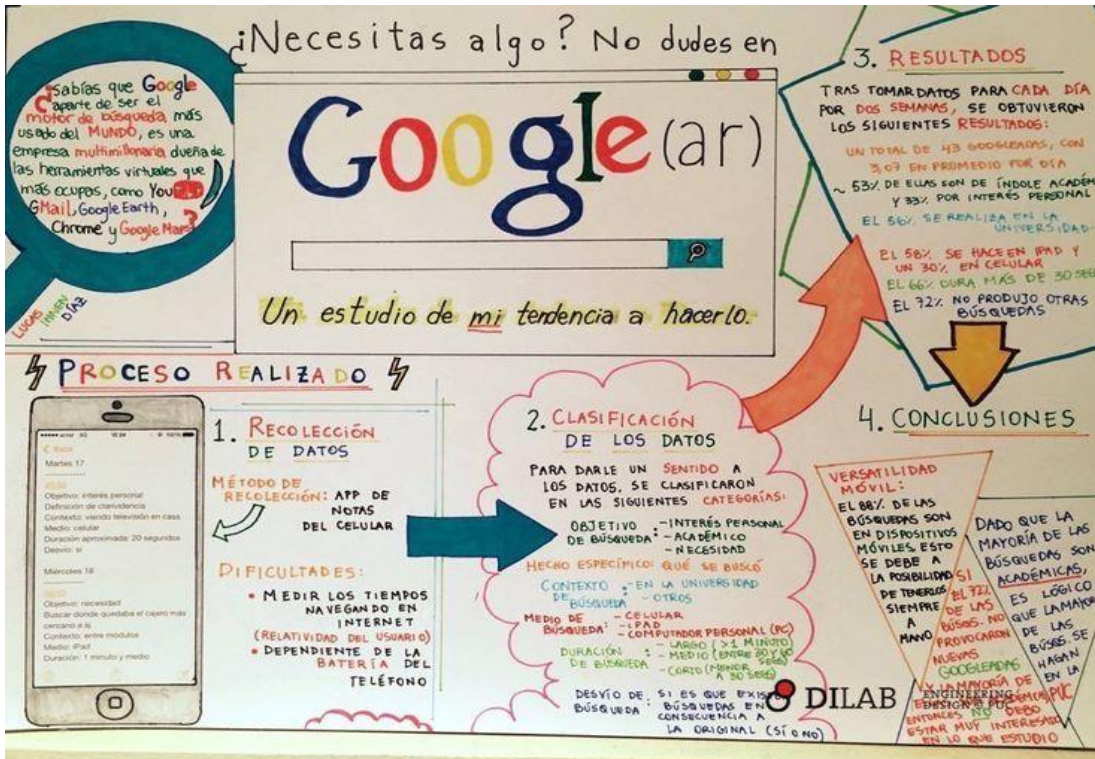 ¿Necesitas algo? No dudes en
Google(ar)
Un estudio de mi tendencia a hacerlo.
¿Sabías que Google
aparte de ser el
motor de búsqueda, más
usado del MUNDO, es una
empresa multimillonaria dueña de
las herramientas virtuales que
más ocupas, como You
GMail, Google Earth,
Chrome y Google Maps?
LUCAS
DÍAZ
PROCESO REALIZADO
15:24
100%
Martes 17
Objetivo: interés personal
Definición de clarividencia
Contexto: viendo televisión en casa
Medio: celular
Duración aproximada: 20 segundos
Desvío: si
Miércoles 18
Objetivo: necesidad
Buscar donde quedaba el cajero más
cercano a sj
Contexto: entre módulos
Medio: iPad
Duración: 1 minuto y medio
1. RECOLECCIÓN
DE DATOS
MÉTODO DE
RECOLECCIÓN: APP DE
NOTAS
DEL CELULAR
DIFICULTADES:
• MEDIR LOS TIEMPOS
NAVEGANDO EN
INTERNET
(RELATIVIDAD DEL USUARIO)
• DEPENDIENTE DE LA
BATERÍA DEL
TELÉFONO
2. CLASIFICACIÓN
DE LOS DATOS
PARA DARLE UN SENTIDO A
LOS DATOS, SE CLASIFICARON
EN LAS SIGUIENTES CATEGORÍAS:
OBJETIVO DE BÚSQUEDA: - INTERÉS PERSONAL
- ACADÉMICO
- NECESIDAD
HECHO ESPECÍFICO: QUÉ SE BUSCÓ
CONTEXTO DE BÚSQUEDA: - EN LA UNIVERSIDAD
- OTROS
MEDIO DE BÚSQUEDA: - CELULAR
- IPAD
- COMPUTADOR PERSONAL (PC)
DURACIÓN DE BÚSQUEDA: - LARGO (>1 MINUTO)
- MEDIO (ENTRE 30 Y
- CORTO (MENOR
A 30 SEGS)
DESVÍO DE BÚSQUEDA: SI ES QUE
BÚSQUEDAS EN
CONSECUENCIA A
LA ORIGINAL (SÍ O NO)
3. RESULTADOS
TRAS TOMAR DATOS PARA CADA DÍA
POR DOS SEMANAS, SE OBTUVIERON
LOS SIGUIENTES RESULTADOS:
UN TOTAL DE 43 GOOGLEADAS, CON
3,07 EN PROMEDIO POR DÍA
~ 53% DE ELLAS SON DE ÍNDOLE ACADÉM
Y 33% POR INTERÉS PERSONAL
EL 56% SE REALIZA EN LA
UNIVERSIDAD
EL 58% SE HACE EN IPAD Y
UN 30% EN CELULAR
EL 66% DURA MÁS DE 30 SEG
EL 72% NO PRODUJO OTRAS
BÚSQUEDAS
4. CONCLUSIONES
VERSATILIDAD
MÓVIL:
EL 88% DE LAS
BÚSQUEDAS SON
EN DISPOSITIVOS
MÓVILES. ESTO
SE DEBE A
LA POSIBILIDAD
DE TENERLOS
SIEMPRE
A
MANO
SI
EL 72%
DE LAS
BÚSQS. NO
PROVOCARON
NUEVAS
GOOGLEADAS
Y LA MAYORÍA DE
ENTONCES NO DEBO
ESTAR MUY INTERESADO
EN LO QUE ESTUDIO
DADO QUE LA
MAYORÍA DE LAS
BÚSQUEDAS SON
ACADÉMICAS,
ES LÓGICO
QUE LA MAYOR
DE LAS
BÚSQS. SE
HAGAN
EN LA
PUC
DILAB
ENGINEERING
DESIGN @ PUC